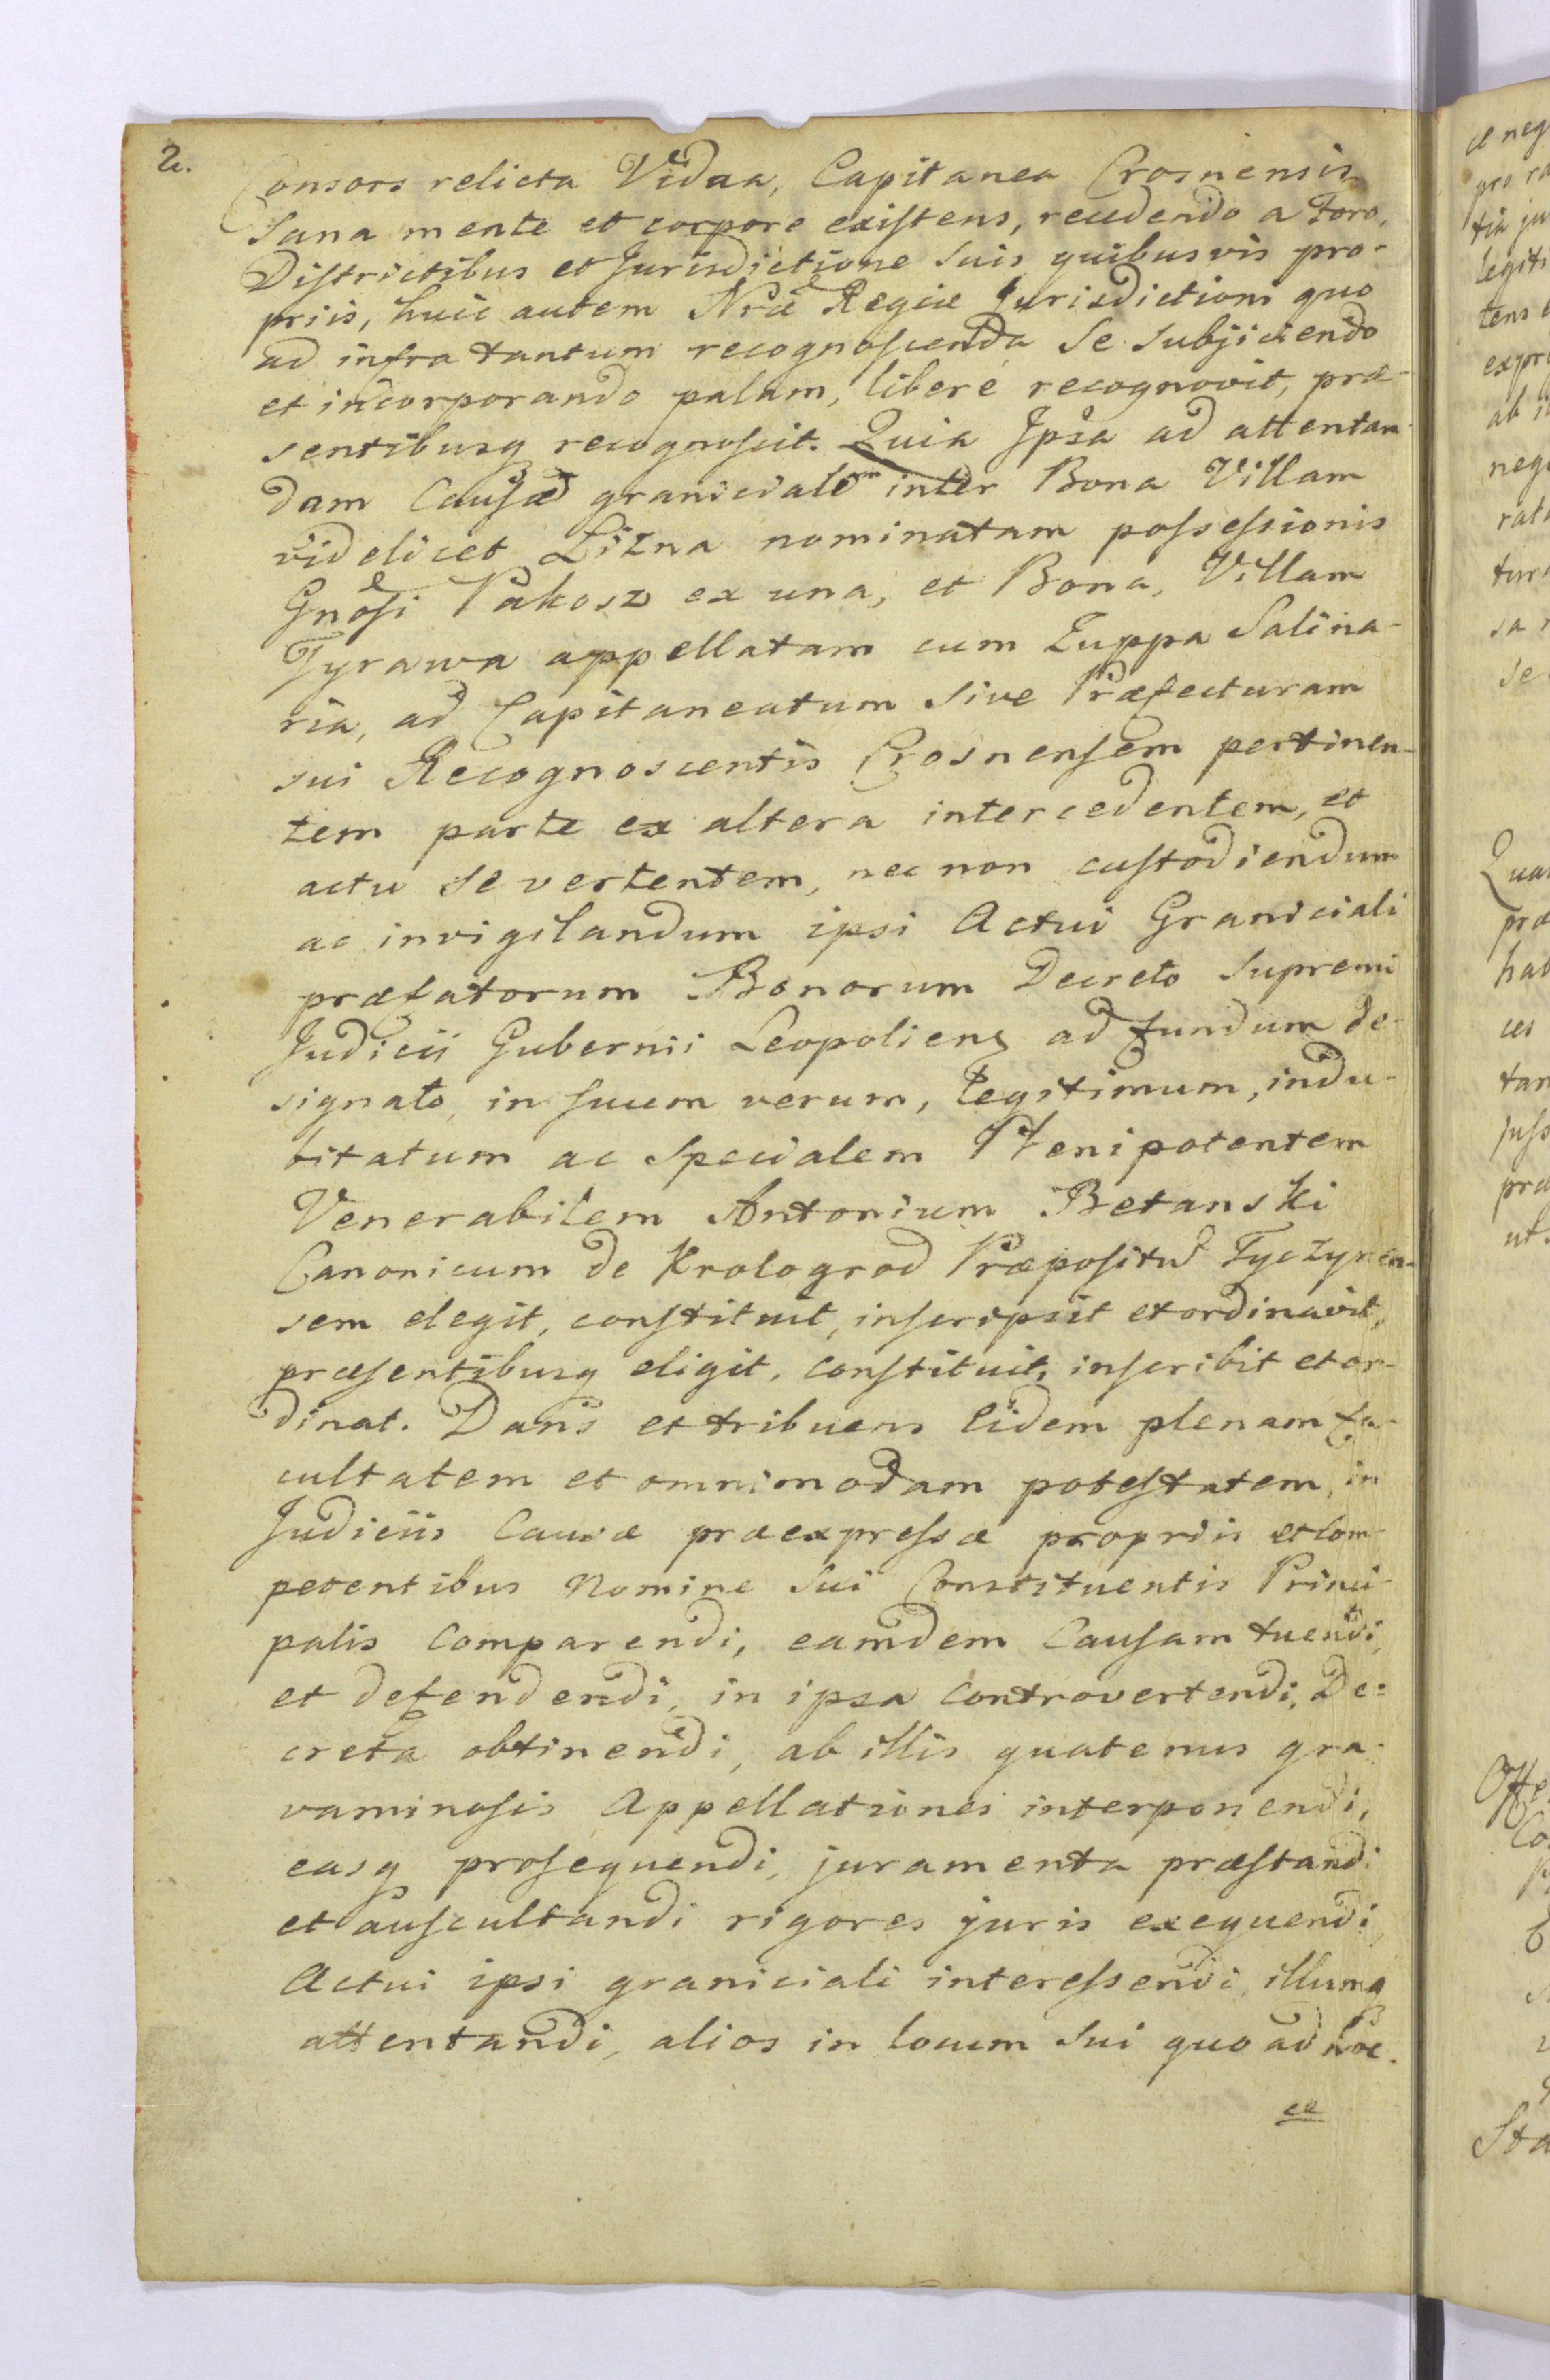 2.
Consors relicta Vidua, Capitanea Crosnensis
Sana mente et corpore existens, recedendo a Foro,
Districtibus et Jurisdictione Suis quibusvis pro-
priis, huic autem Nrae Regiae Jurisdictioni quo
ad infra tantum recognoscenda Se Subjiciendo
et incorporando palam, libere recognovit, prae-
sentibusq recognoscit. Quia Ipsa ad attentan-
dam Causae granicialem inter Bona Villam
videlicet Lizna nominatam possessionis
Gnosi Pakosz ex una, et Bona, Villam
Tyrawa appellatam cum Zuppa Salina-
ria, ad Capitaneatum Sive Praefecturam
sui Recognoscentis Crosnensem pertinen-
tem parte ex altera intercedentem, et
actu se vertentem, nec non custodiendum
ac invigilandum ipsi Actui Graniciali
praefatorum Bonorum Decreto Supremi
Judicii Gubernii Leopoliens ad fundum de-
signato, in suum verum, legitimum, indu-
bitatum ac Specialem Plenipotentem
Venerabilem Antonium Betanski
Canonicum de Krologrod Praepositu Tyczynen-
sem elegit, constituit, inscripsit et ordinavit,
praesentibusq eligit, constituit, inscribit et or-
dinat. Dans et tribuens Eidem plenam fa-
cultatem et omnimodam potestatem, in
Judiciis Causae praeexpressae propriis et Com-
petentibus Nomine Sui Constituentis Princi-
palis Comparendi, eamdem Causam tuendi,
et defendendi, in ipsa Controvertendi, De-
creta obtinendi, ab illis quatenus gra-
vaminosis Appellationes interponendi,
easq prosequendi, juramenta praestandi
et auscultandi rigores juris exequendi,
Actui ipsi graniciali interessendi, illumq
attentandi, alios in locum Sui quo ad hoc.
ce